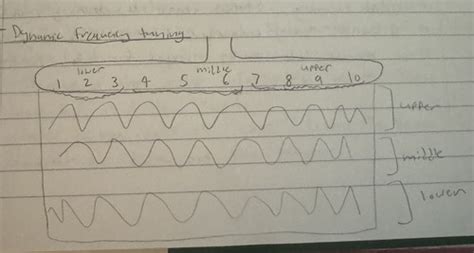 - Dynamic frequency tuning
lower middle upper
1 2 3 4 5 6 7 8 9 10
upper
middle
lower